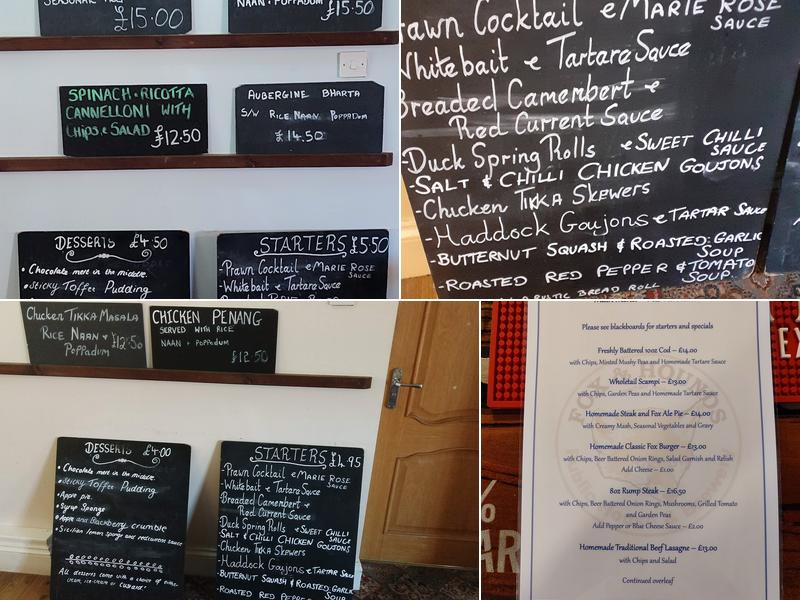 £15.00
NAAN & POPPADUM
£15.50
SPINACH & RICOTTA
CANNELLONI WITH
Chips & SALAD £12.50
AUBERGINE BHARTA
S/W RICE NAAN POPPADUM
£14.50
DESSERTS £4.50
• Chocolate melt in the middle.
• Sticky Toffee Pudding
STARTERS £5.50
-Prawn Cocktail & MARIE ROSE
SAUCE
-Whitebait & Tartare Sauce
Prawn Cocktail & MARIE ROSE
SAUCE
Whitebait & Tartare Sauce
Breaded Camembert &
Red Current Sauce
-Duck Spring Rolls & SWEET CHILLI
SAUCE
-SALT & CHILLI CHICKEN GOUJONS
-Chicken TIKKA Skewers
-Haddock Goujons & TARTAR SAUCE
-BUTTERNUT SQUASH & ROASTED GARLIC
SOUP
-ROASTED RED PEPPER & TOMATO
SOUP
RUSTIC BREAD ROLL
Chicken TIKKA MASALA
RICE NAAN &
POPPADUM £12.50
CHICKEN PENANG
SERVED WITH RICE
NAAN & POPPADUM
£12.50
DESSERTS £4.00
• Chocolate melt in the middle.
• Sticky Toffee Pudding
• Apple pie.
• Syrup Sponge
• Apple and Blackberry crumble
• Sicilian lemon sponge and
All desserts come with a choice of either
cream, ice-cream or custard
STARTERS £4.95
-Prawn Cocktail & MARIE ROSE
SAUCE
-Whitebait & Tartare Sauce
-Breaded Camembert &
Red Current Sauce
-Duck Spring Rolls & SWEET CHILLI
SAUCE
-SALT & CHILLI CHICKEN GOUJONS
-Chicken TIKKA Skewers
-Haddock Goujons & TARTAR SAUCE
-BUTTERNUT SQUASH & ROASTED GARLIC
SOUP
-ROASTED RED PEPPER
Please see blackboards for starters and specials
Freshly Battered 10oz Cod – £14.00
with Chips, Minted Mushy Peas and Homemade Tartare Sauce
Wholetail Scampi – £13.00
with Chips, Garden Peas and Homemade Tartare Sauce
Homemade Steak and Fox Ale Pie – £14.00
with Creamy Mash, Seasonal Vegetables and Gravy
Homemade Classic Fox Burger – £13.00
with Chips, Beer Battered Onion Rings, Salad Garnish and Relish
Add Cheese – £1.00
8oz Rump Steak – £16.50
with Chips, Beer Battered Onion Rings, Mushrooms, Grilled Tomato
and Garden Peas
Add Pepper or Blue Cheese Sauce – £2.00
Homemade Traditional Beef Lasagne – £13.00
with Chips and Salad
Continued overleaf
FOX & HOUNDS
EX
%
AR